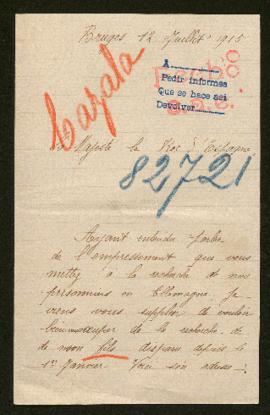 Bruges 12 Juillet 1915
Cazala
A
Pedir informes
Que se hace sei
Devolver
Majesté le Roi d'Espagne
82721
Ayant entendu parler
de l'empressement que vous
mettez à la recherche de nos
prisonniers en Allemagne je
viens vous supplier de vouloir
bien occuper de la recherche de
de mon fils disparu depuis le
1er Janvier. Voici son adresse :